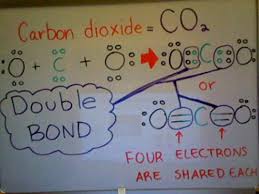 Carbon dioxide = CO₂
O + C + O → O C O
or
O C O
Double
BOND
FOUR ELECTRONS
ARE SHARED EACH